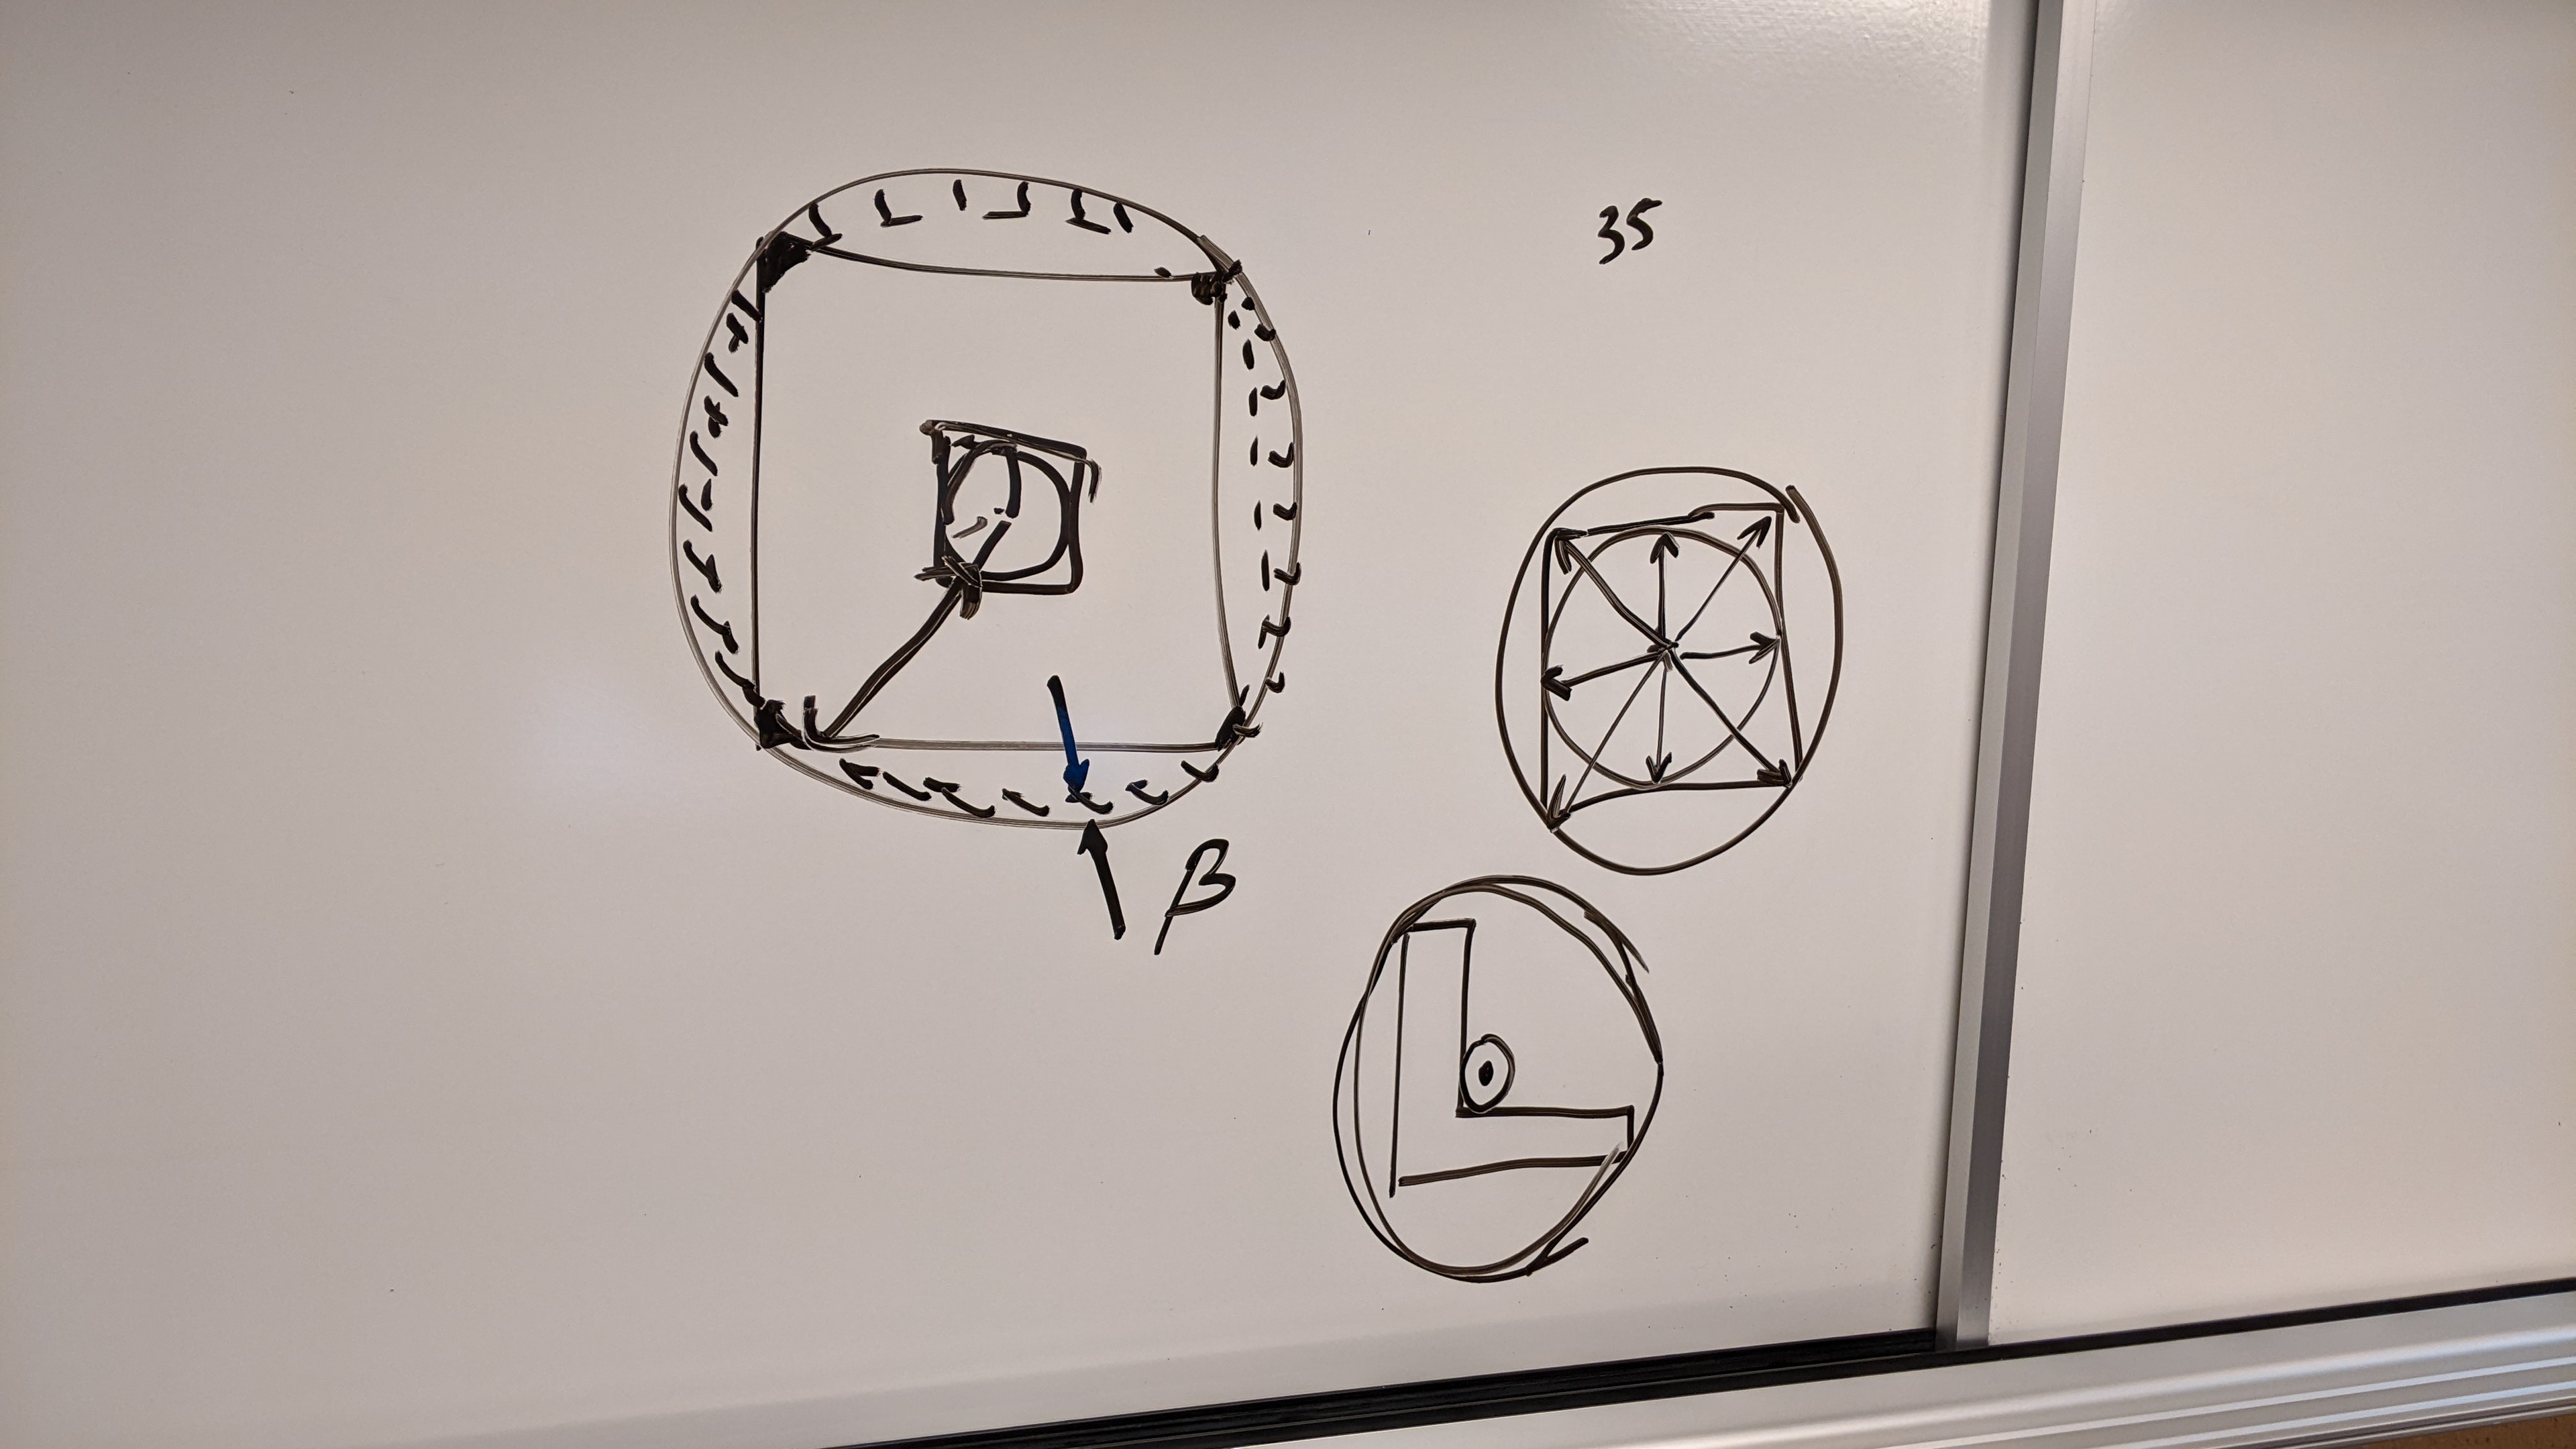 35
β